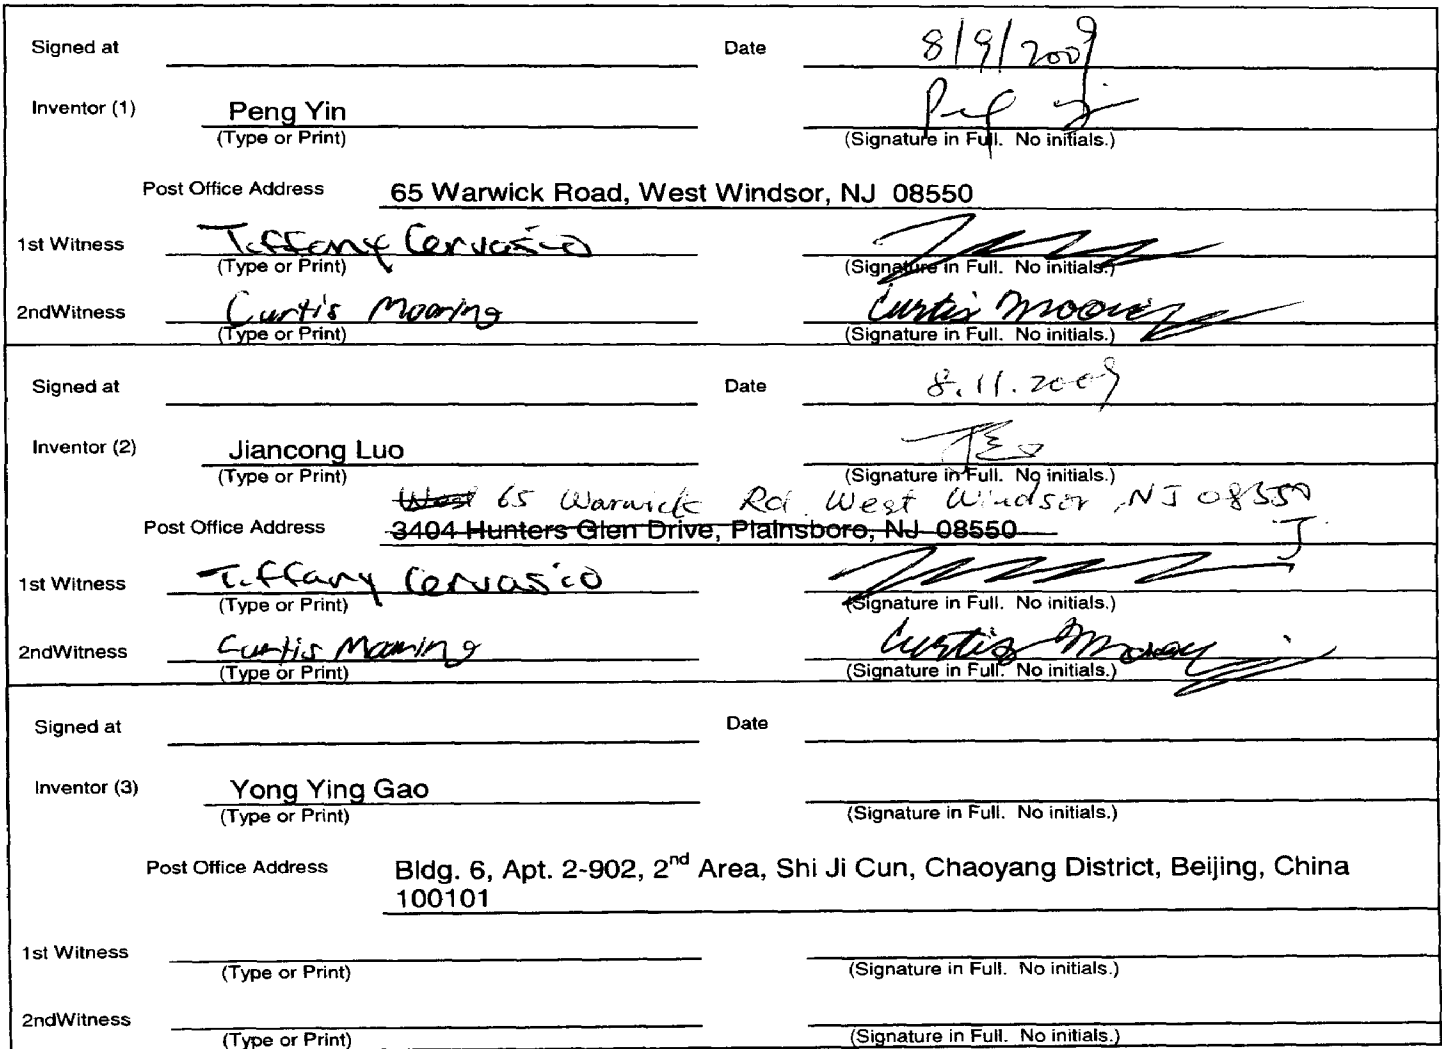 Signed at Date 8/9/2009
Inventor (1) Peng Yin
(Type or Print) (Signature in Full. No initials.)
Post Office Address 65 Warwick Road, West Windsor, NJ 08550
1st Witness Tiffany Cervasio
(Type or Print) (Signature in Full. No initials.)
2ndWitness Curtis Curtis
(Type or Print) (Signature in Full. No initials.)
Signed at Date 8.11.2009
Inventor (2) Jiancong Luo
(Type or Print) (Signature in Full. No initials.)
West 65 Warwick Rd West Windsor, NJ 08550
Post Office Address 3404 Hunters Glen Drive, Plainsboro, NJ 08550 J
1st Witness Tiffany Cervasio
(Type or Print) (Signature in Full. No initials.)
2ndWitness Curtis Curtis
(Type or Print) (Signature in Full. No initials.)
Signed at Date
Inventor (3) Yong Ying Gao
(Type or Print) (Signature in Full. No initials.)
Post Office Address Bldg. 6, Apt. 2-902, 2nd Area, Shi Ji Cun, Chaoyang District, Beijing, China
100101
1st Witness
(Type or Print) (Signature in Full. No initials.)
2ndWitness
(Type or Print) (Signature in Full. No initials.)